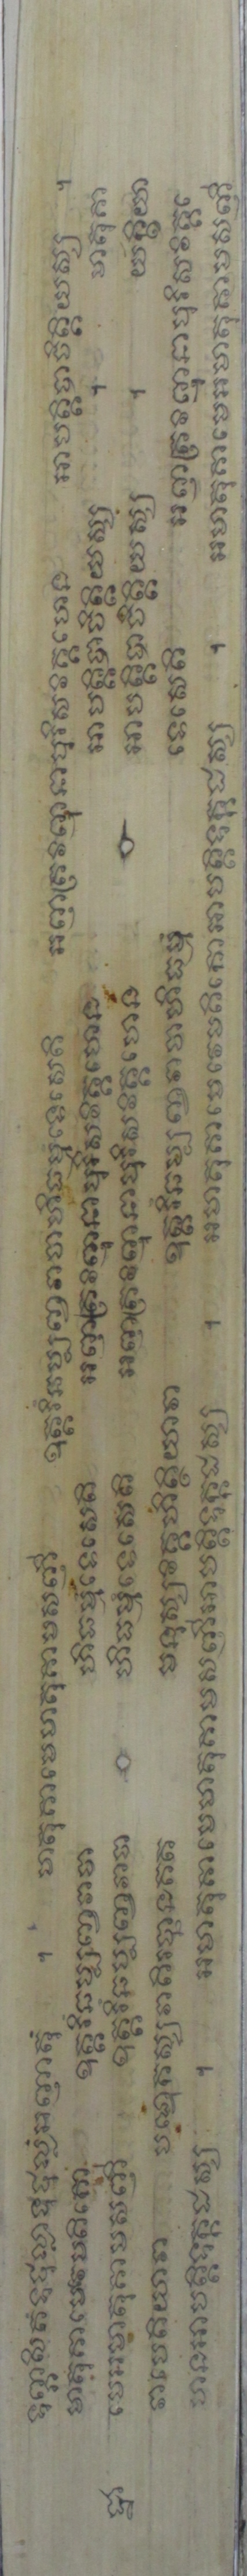 ទុព្ភាសិតំទុដ្ឋុល្លាទុដ្ឋុល្លំអញាតុំ ។ មាតុគាមេមាតុគាមសញ្ញី ឧត្តរិឆប្បញ្ចវាចាហិធម្មំទេសេតិ អញត្រវិញ្ញុនាបុរិសវិគ្គហេន អាបត្តិបាចិត្តិយស្ស ។
មាតុគាមេវេមតិកោ ឧត្តរិឆប្បញ្ចវាចា ហិធម្មំទេសេតិ អញត្រវិញ្ញុនាបុរិសវិគ្គហេន អាបត្តិបាចិត្តិយស្ស ។ មាតុគា
មេអមាតុគាមសញ្ញី ឧត្តរិឆប្បញ្ចវាចា ហិធម្មំទេសេតិ អញត្រវិញ្ញុនាបុរិសវិគ្គហេន អាបត្តិបាចិត្តិយស្ស ។ យក្ខិយា
វាបេតិយាវា បណ្ឌកស្សវាតិរច្ឆានគត មនុស្សវិគ្គហិត្ថិយាវា ឧត្តរិឆប្បញ្ចវាចាហិធម្មំ ទេសេតិ អញត្រវិញ្ញុនាបុរិសវិគ្គ
ហេនអាបត្តិទុក្កដស្ស ។ អមាតុគាមេមាតុគាមសញ្ញីអាបត្តិទុក្កដស្ស ។ អមាតុគាមេវេមតិកោអាបត្តិទុក្កដស្ស ។ អមាតុគាមេអមាតុគាមសញ្ញី